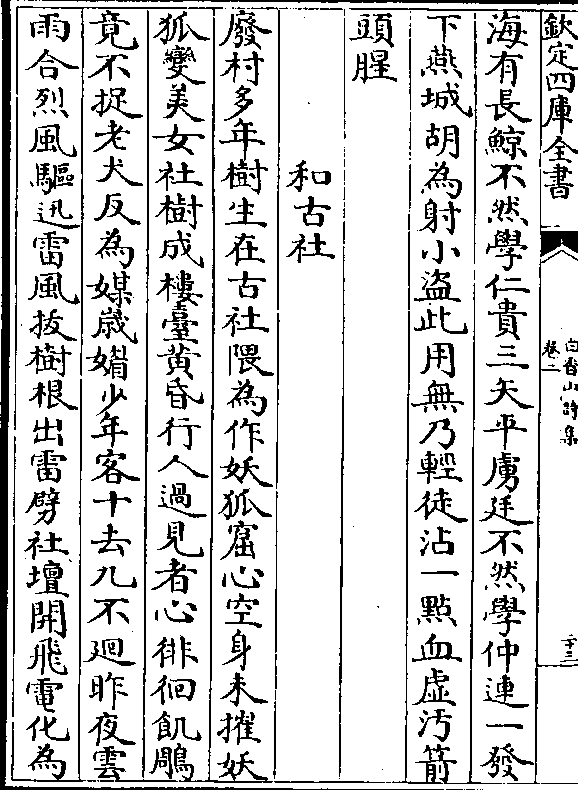 欽定四庫全書
白香山詩集
卷二
二十三
海有長鯨不然學仁貴三矢平虜廷不然學仲連一發
下燕城胡為射小盜此用無乃輕徒沾一點血虛汚箭
頭腥
和古社
廢村多年樹生在古社隈為作妖狐窟心空身未摧妖
狐變美女社樹成樓臺黄昏行人過見者心徘徊飢鵰
竟不捉老犬反為媒歲媚少年客十去九不迴昨夜雲
雨合烈風驅迅雷風拔樹根出雷劈社壇開飛電化為